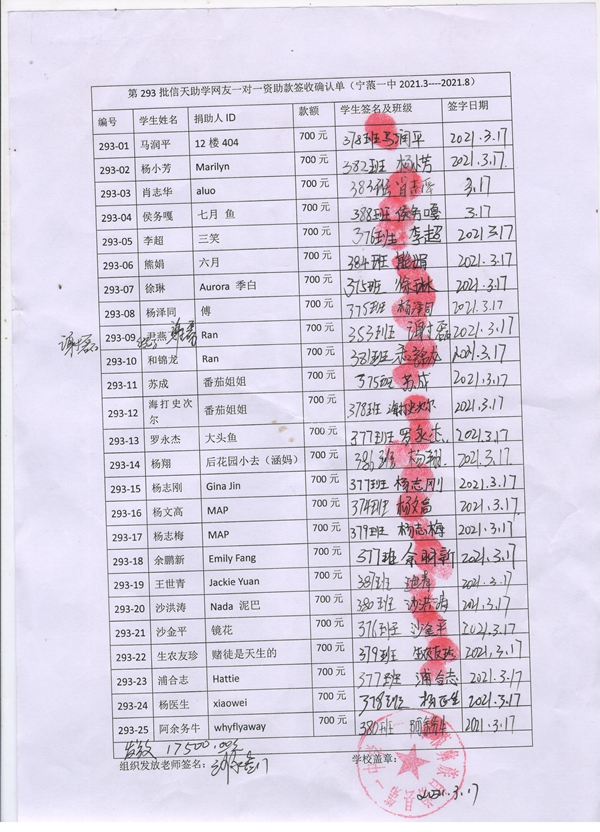 第 293 批信天助学网友一对一资助款签收确认单（宁蒗一中 2021.3----2021.8）
编号 学生姓名 捐助人 ID 款额 学生签名及班级 签字日期
293-01 马润平 12 楼 404 700 元 378班 马润平 2021.3.17
293-02 杨小芳 Marilyn 700 元 382班 杨小芳 2021.3.17
293-03 肖志华 aluo 700 元 383班 肖志华 3.17
293-04 侯务嘎 七月 鱼 700 元 388班 侯务嘎 3.17
293-05 李超 三笑 700 元 376班 李超 2021.3.17
293-06 熊娟 六月 700 元 384班 熊娟 2021.3.17
293-07 徐琳 Aurora 季白 700 元 375班 徐琳 2021.3.17
293-08 杨泽同 傅 700 元 375班 杨泽同 2021.3.17
293-09 尹燕 Ran 700 元 353班 2021.3.17
293-10 和锦龙 Ran 700 元 381班 和锦龙 2021.3.17
293-11 苏成 番茄姐姐 700 元 375班 苏成 2021.3.17
293-12 海打史次尔 番茄姐姐 700 元 378班 2021.3.17
293-13 罗永杰 大头鱼 700 元 377班 罗永杰 2021.3.17
293-14 杨翔 后花园小去（涵妈） 700 元 386班 杨翔 2021.3.17
293-15 杨志刚 Gina Jin 700 元 377班 杨志刚 2021.3.17
293-16 杨文高 MAP 700 元 374班 杨文高 2021.3.17
293-17 杨志梅 MAP 700 元 379班 杨志梅 2021.3.17
293-18 余鹏新 Emily Fang 700 元 377班 余鹏新 2021.3.17
293-19 王世青 Jackie Yuan 700 元 387班 2021.3.17
293-20 沙洪涛 Nada 泥巴 700 元 380班 沙洪涛 2021.3.17
293-21 沙金平 镜花 700 元 376班 沙金平 2021.3.17
293-22 生农友珍 赌徒是天生的 700 元 379班 生农友珍 2021.3.17
293-23 浦合志 Hattie 700 元 377班 浦合志 2021.3.17
293-24 杨医生 xiaowei 700 元 378班 杨医生 2021.3.17
293-25 阿余务牛 whyflyaway 700 元 380班 阿余务牛 2021.3.17
发放 17500.00
组织发放老师签名： 学校盖章：
2021.3.17